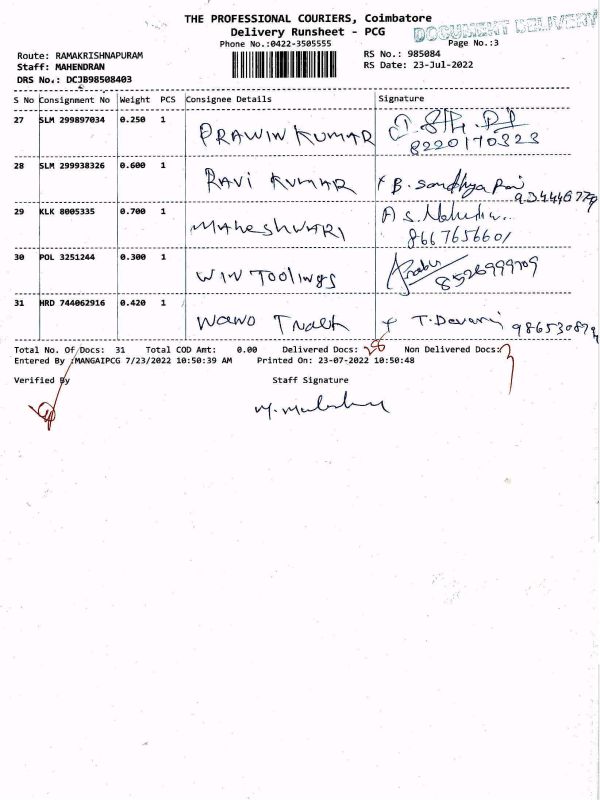 THE PROFESSIONAL COURIERS, Coimbatore
DOCUMENT DELIVERY
Delivery Runsheet - PCG
Phone No.:0422-3505555
Page No.:3
Route: RAMAKRISHNAPURAM
RS No.: 985084
Staff: MAHENDRAN
RS Date: 23-Jul-2022
DRS No.: DCJB98508403
S No Consignment No Weight PCS Consignee Details Signature
27 SLM 299897034 0.250 1 PRAWIN KUMAR
8220170323
28 SLM 299938326 0.600 1 RAVI KUMAR B. Sandhya
29 KLK 8005335 0.700 1 MAHESHWARI
8667656601
30 POL 3251244 0.300 1 WIN TOOLINGS
8526999709
31 HRD 744062916 0.420 1 T. Devani
Total No. Of Docs: 31 Total COD Amt: 0.00 Delivered Docs: 28 Non Delivered Docs: 3
Entered By :MANGAIPCG 7/23/2022 10:50:39 AM Printed On: 23-07-2022 10:50:48
Verified By Staff Signature